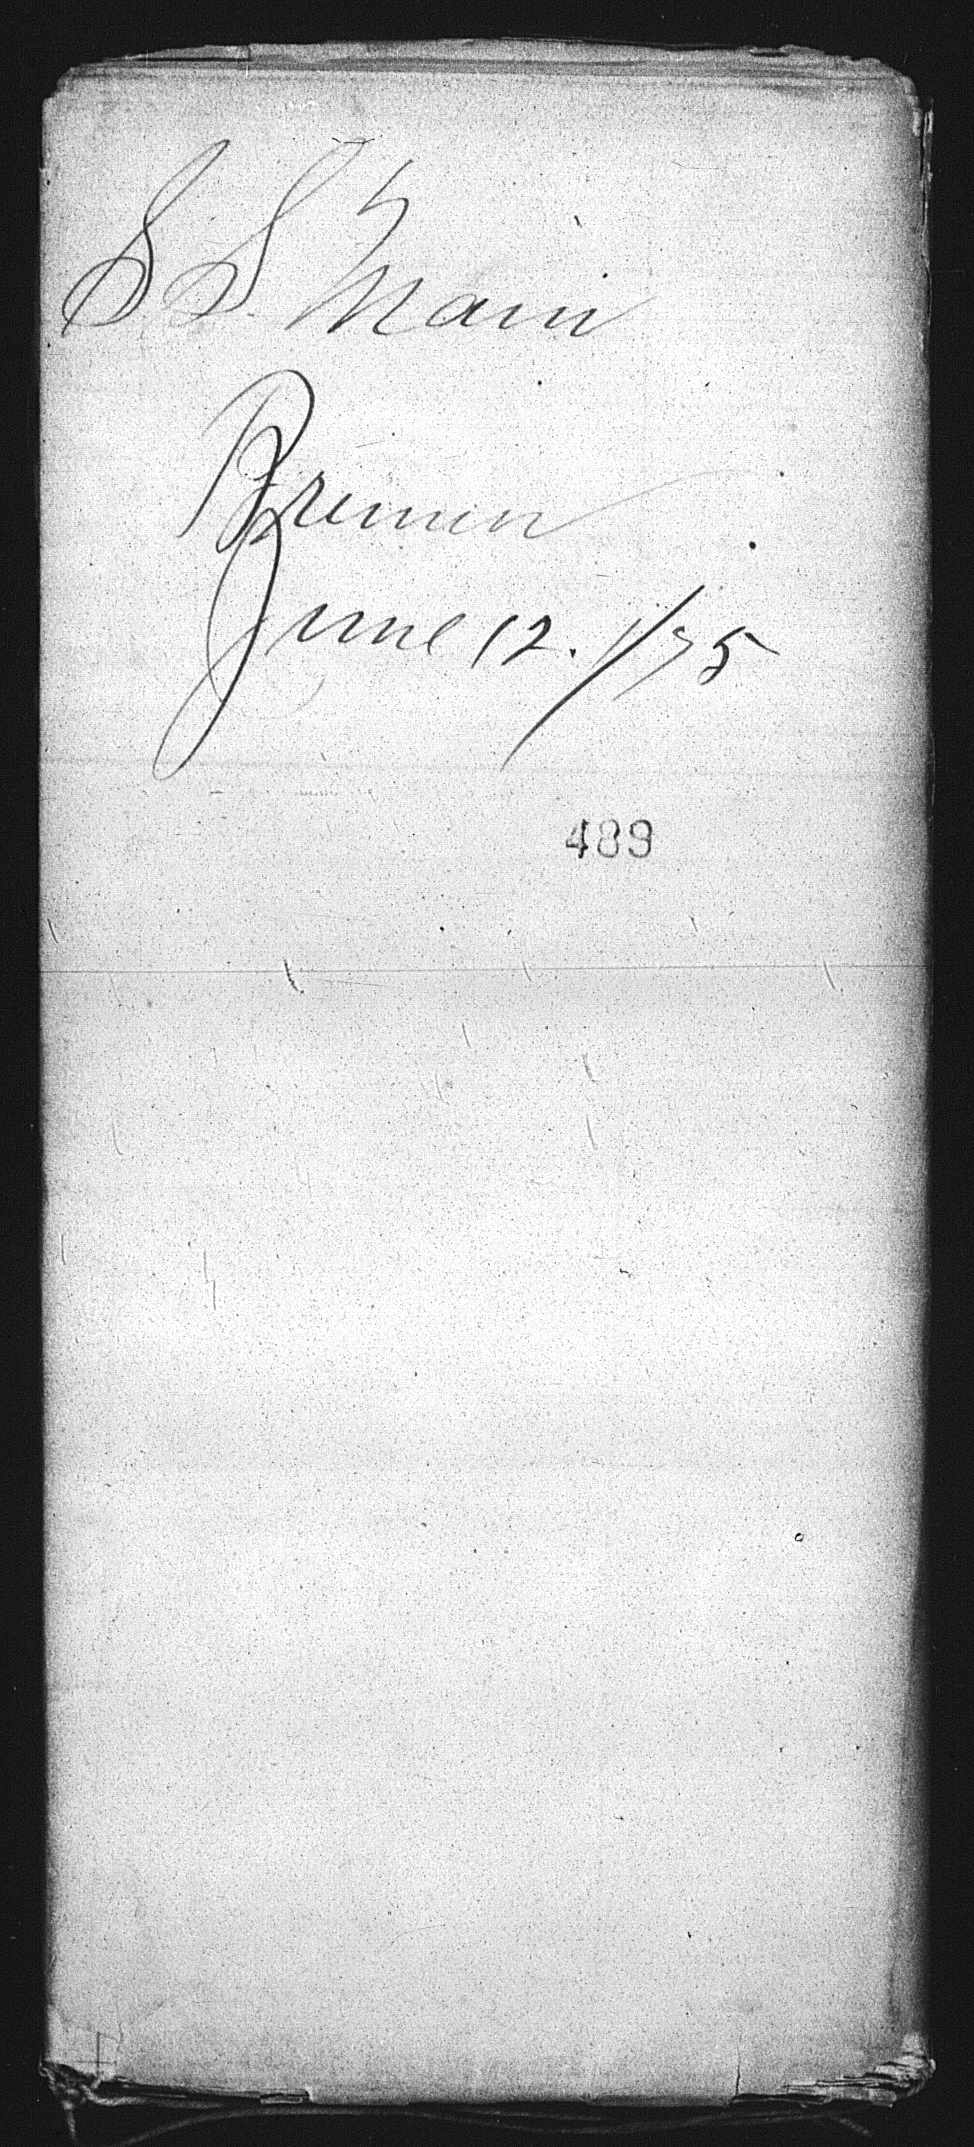 S S. Main
Bremen
June 12. 1/75
489